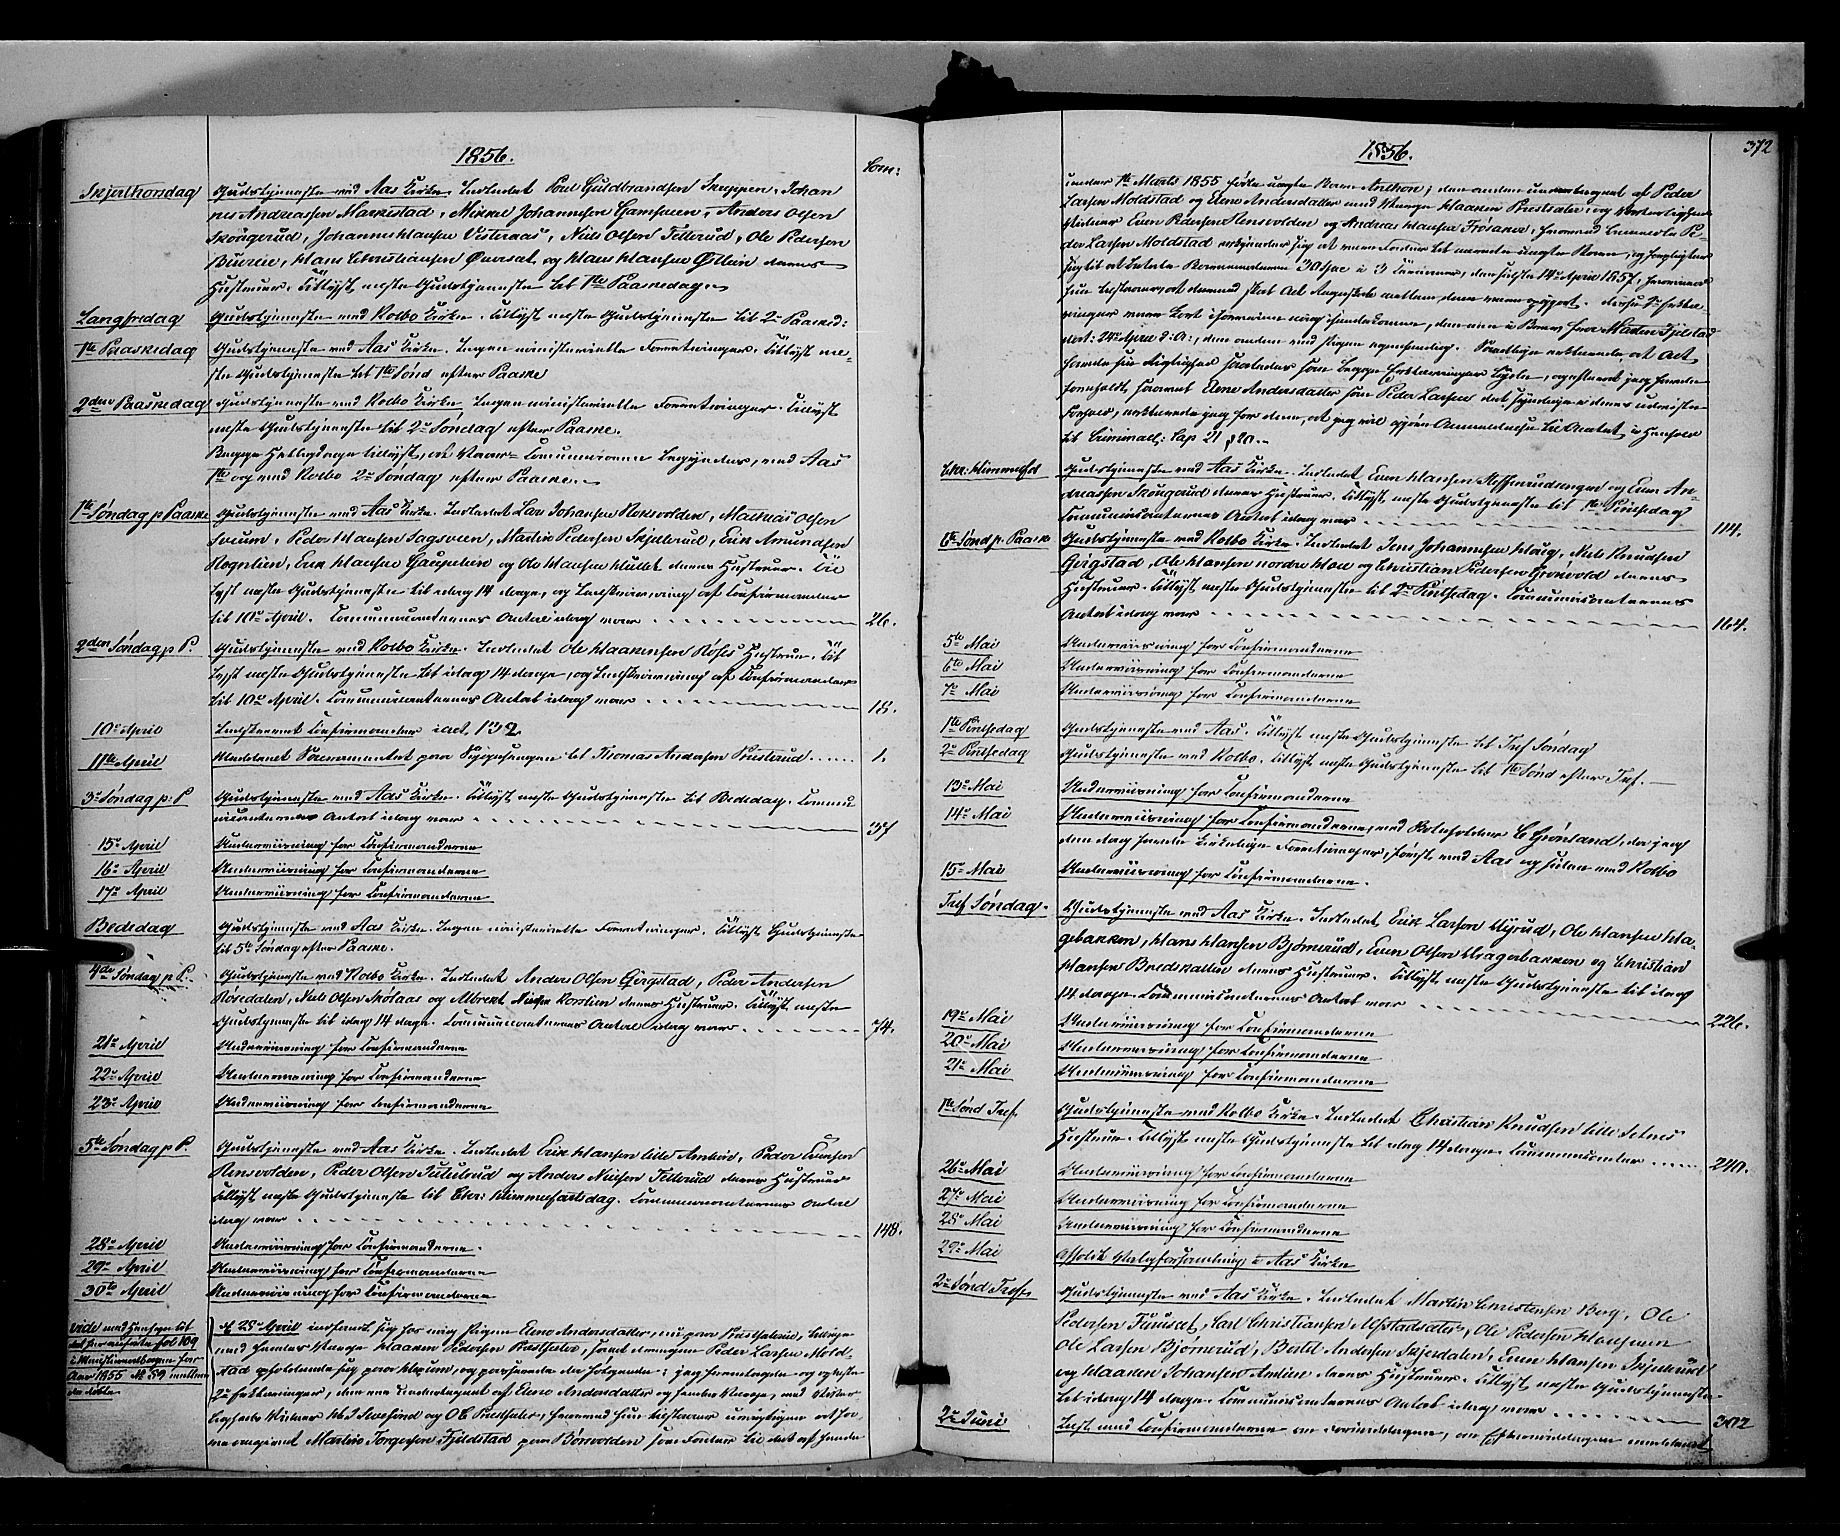 1856.
Com:
Skjærthorsdag Gudstjeneste ved Aas Kirke. Indledet Poul Guldbrandsen Skuppen, Johan
nes Andreassen Markestad, Mikkel Johannesen Gamsveen, Anders Olsen
Skougerud, Johannes Hansen Vesteraas, Niels Olsen Tetterud, Ole Pedersen
Hans Christiansen Querset, og Hans Hansen Østlien deres
Hustruer. Tillyst næste Gudstjeneste til 1ste Paaskedag.
Langfredag Gudstjeneste ved Kolbo Kirke. Tillyst næste Gudstjeneste til 2n Paasked:
1ste Paaskedag Gudstjeneste ved Aas Kirke. Ingen ministerielle Forretninger. Tillyst næ-
ste Gudstjeneste til 1ste Sønd efter Paaske
2den Paaskedag Gudstjeneste ved Kolbo Kirke, Ingen ministerielle Forretninger. Tillyst
næste Gudstjeneste til 2n Søndag efter Paaske.
Begge Helligdage tillyst, at Vaar-Communionen begynder, ved Aas
1ste og ved Kolbo 2n Søndag efter Paaske.
1ste Søndag p Paaske Gudstjeneste ved Aas Kirke. Indledet Lars Johansen Rensvolden, Mathias Olsen
Sveum, Peder Hansen Sagsveen, Martin Pedersen Skjelerud, Erik Amundsen
Rognlien, Erik Hansen Gaupelien og Ole Hansen Hullet deres Hustruer. Til
lyst næste Gudstjeneste til idag 14 dage, og Indskrivning af Confirmander
til 10de April. Communicanternes Antal idag var 26.
2den Søndag p P. Gudstjeneste ved Kolbo Kirke. Indledet Ole Haakensen Røises Hustrue. Til
lyst næste Gudstjeneste til idag 14 dage, og Indskrivning af Confirmander
til 10de April. Communicanternes Antal idag var 18.
10de April Indskrevet Confirmander i alt 132
11te April Meddeelt Sacramentet paa Sygesengen til Thomas Andersen Præsterud 1.
3die Søndag p: P Gudstjeneste ved Aas Kirke. Tillyst næste Gudstjeneste til Bededag. Commu
nicanternes Antal idag var 37
15de April Underviisning for Confirmanderne
16de April Underviisning for Confirmanderne
17de April Underviisning for Confirmanderne
Bededag Gudstjeneste ved Aas Kirke. Ingen ministerielle Forretninger. Tillyst Gudstjeneste
til 5te Søndag efter Paaske.
4de Søndag p P. Gudstjeneste ved Kolbo Kirke. Indledet Anders Olsen Gjegstad, Peder Andersen
Røisedalen, Niels Olsen Skolaas og Albrekt Nielsen Rosslien deres Hustruer. Tillyst næste
Gudstjeneste til idag 14 dage. Communicanternes Antal idag var 74.
21de April Underviisning for Confirmanderne
22de April Underviisning for Confirmanderne
23de April Underviisning for Confirmanderne
5te Søndag p P. Gudstjeneste ved Aas Kirke. Indledet Erik Hansen lille Amlien, Peder Evensen
Rensvolden, Peder Olsen Tutulrud og Anders Nielsen Tetterud deres Hustruer
Tillyst næste Gudstjeneste til Chr: Himmelfartsdag. Communicanternes Antal
idag var 148.
28de April Underviisning for Confirmanderne.
29de April Underviisning for Confirmanderne
30te April Underviisning for Confirmanderne
vide med Hensyn til
det her anførte fol 109
i Ministerialbogen for
Aar 1855 No 59 mellem
de døbte
d. 28de April indfandt sig hos mig Pigen Elene Andersdatter, nu paa Præstsæter,
med hendes Værge Haaken Pedersen Præstsæter, samt Peder Larsen Mold-
stad opholdende sig paa Kraum, og passerede da følgende: jeg fremlagde og oplæste
2de Erklæringer, den ene undertegnet af Elene Andersdatter og hendes Værge, med Vitter
ligheds Vidner
have angivet Martin Torgersen Fjeldstad paa Børsvolden som Fader til det af hende

1856. 372
under 1ste Marts 1855 fødte uægte Barn Anthon; den anden undertegnet af Peder
Larsen Moldstad og Elene Andersdatter med Værge Haaken Præstsæter, og Vitterligheds
Vidner Even Pedersen Rensvolden og Andreas Hansen Frøsaker, hvorved bemeldte Pe-
der Larsen Moldstad erkjender sig at være Fader til nævnte uægte Barn, og forpligter
sig til at betale Barnemoderen 30 Spe i 3 Terminer, den sidste 14de April 1857, hvorimod
hun lover, at dermed skal alt Angaaende mellem dem være opgjort. disse 2de Erklæ
ringer
til Criminall: Cap 21 § 20.
Chr. Himmelfd Gudstjeneste ved Aas Kirke. Indledet Even Hansen og Even An-
dreassen Skougerud deres Hustruer. Tillyst næste Gudstjeneste til 1ste Pintsedag
Communicanternes Antal idag var 114.
6te Sønd p. Paaske Gudstjeneste ved Kolbo Kirke. Indledet Jens Johannesen Haug, Niels Knudsen
Gjegstad, Ole Hansen nordre Hoel og Christian Pedersen Grønvold deres
Hustruer. Tillyst næste Gudstjeneste til 2den Pintsedag. Communicanternes
Antal idag var 164.
5te Mai Underviisning for Confirmanderne
6te Mai Underviisning for Confirmanderne
7de Mai Underviisning for Confirmanderne
1ste Pintsedag Gudstjeneste ved Aas. Tillyst næste Gudstjeneste til Tref Søndag
2den Pintsedag Gudstjeneste ved Kolbo. Tillyst næste Gudstjeneste til 1ste Sønd efter Tref.
13de Mai Underviisning for Confirmanderne
14de Mai Underviisning for Confirmanderne, ved Skoleholder C Grønland, da jeg
den dag havde kirkelige Forretninger, først ved Aas og siden ved Kolbo
15de Mai Underviisning for Confirmanderne.
Tref Søndag. Gudstjeneste ved Aas Kirke. Indledet Erik Larsen Myrud, Ole Hansen Ha-
gebakken, Hans Hansen Bjørnerud, Even Olsen Kragebakken og Christian
Hansen Bredskallen deres Hustruer. Tillyst næste Gudstjeneste til idag
14 dage. Communicanternes Antal var 226.
19de Mai Underviisning for Confirmanderne
20de Mai Underviisning for Confirmanderne
21de Mai Underviisning for Confirmanderne
1ste Sønd Tref. Gudstjeneste ved Kolbo Kirke. Indledet Christian Knudsen lille Selnes
Hustrue. Tillyst næste Gudstjeneste til idag 14 dage. Communicanter 240.
26de Mai Underviisning for Confirmanderne
27de Mai Underviisning for Confirmanderne
28de Mai Underviisning for Confirmanderne
29de Mai Afholdt Valgforsamling i Aas Kirke
2den Sønd Tref. Gudstjeneste ved Aas Kirke. Indledet Martin Christensen Berg, Ole
Pedersen Tuusæt, Carl Christiansen Alfstadsæter, Ole Pedersen
Ole Larsen Bjørnerud, Bertel Andersen Skjerdalen, Even Hansen Skjelerud
og Haaken Johansen Amlien deres Hustruer. Tillyst næste Gudstjeneste
til idag 14 dage. Communicanternes Antal idag var 302
2den Juni Læst med Confirmanderne om Formiddagen, om Eftermiddagen meddeelt